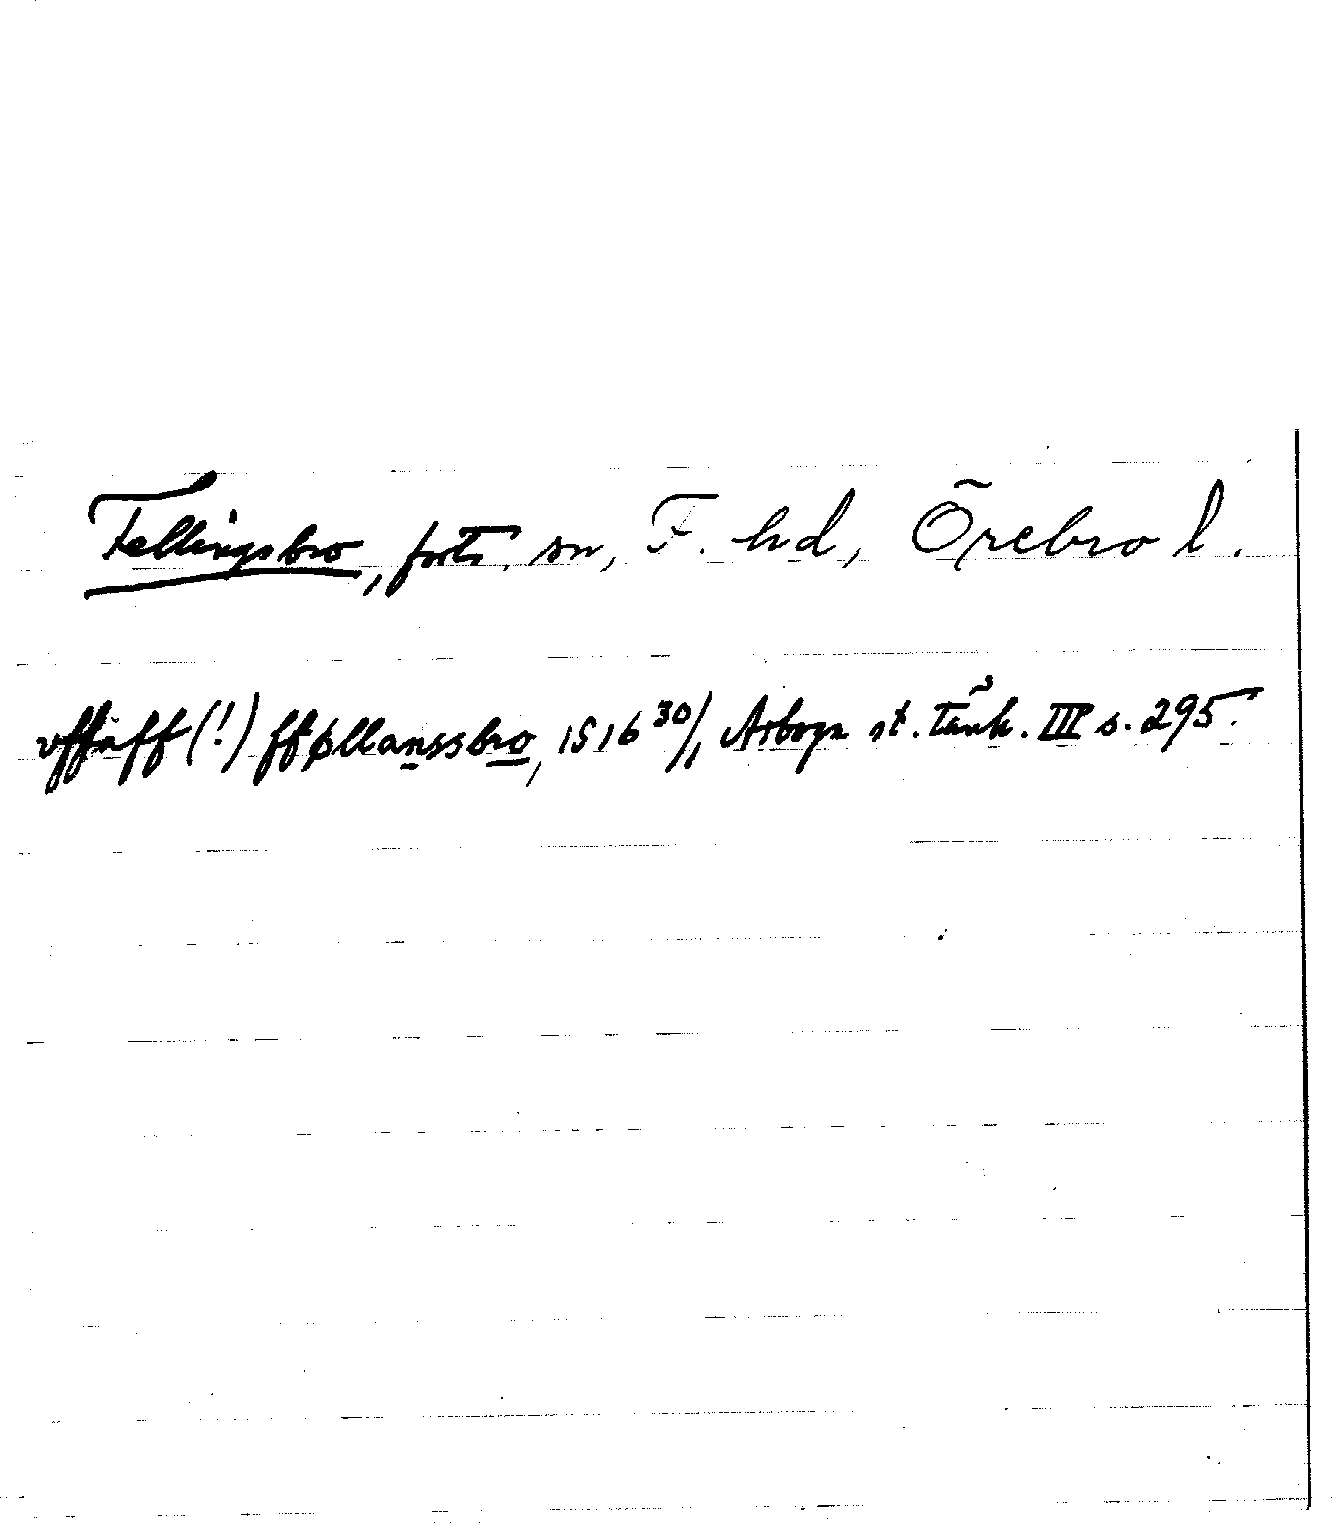 Fellingsbro, forts. sn, F. hd, Örebro l.
vffaff (!) fføllanssbro, 1516 30/1 Arboga st. tänk. III s. 295.